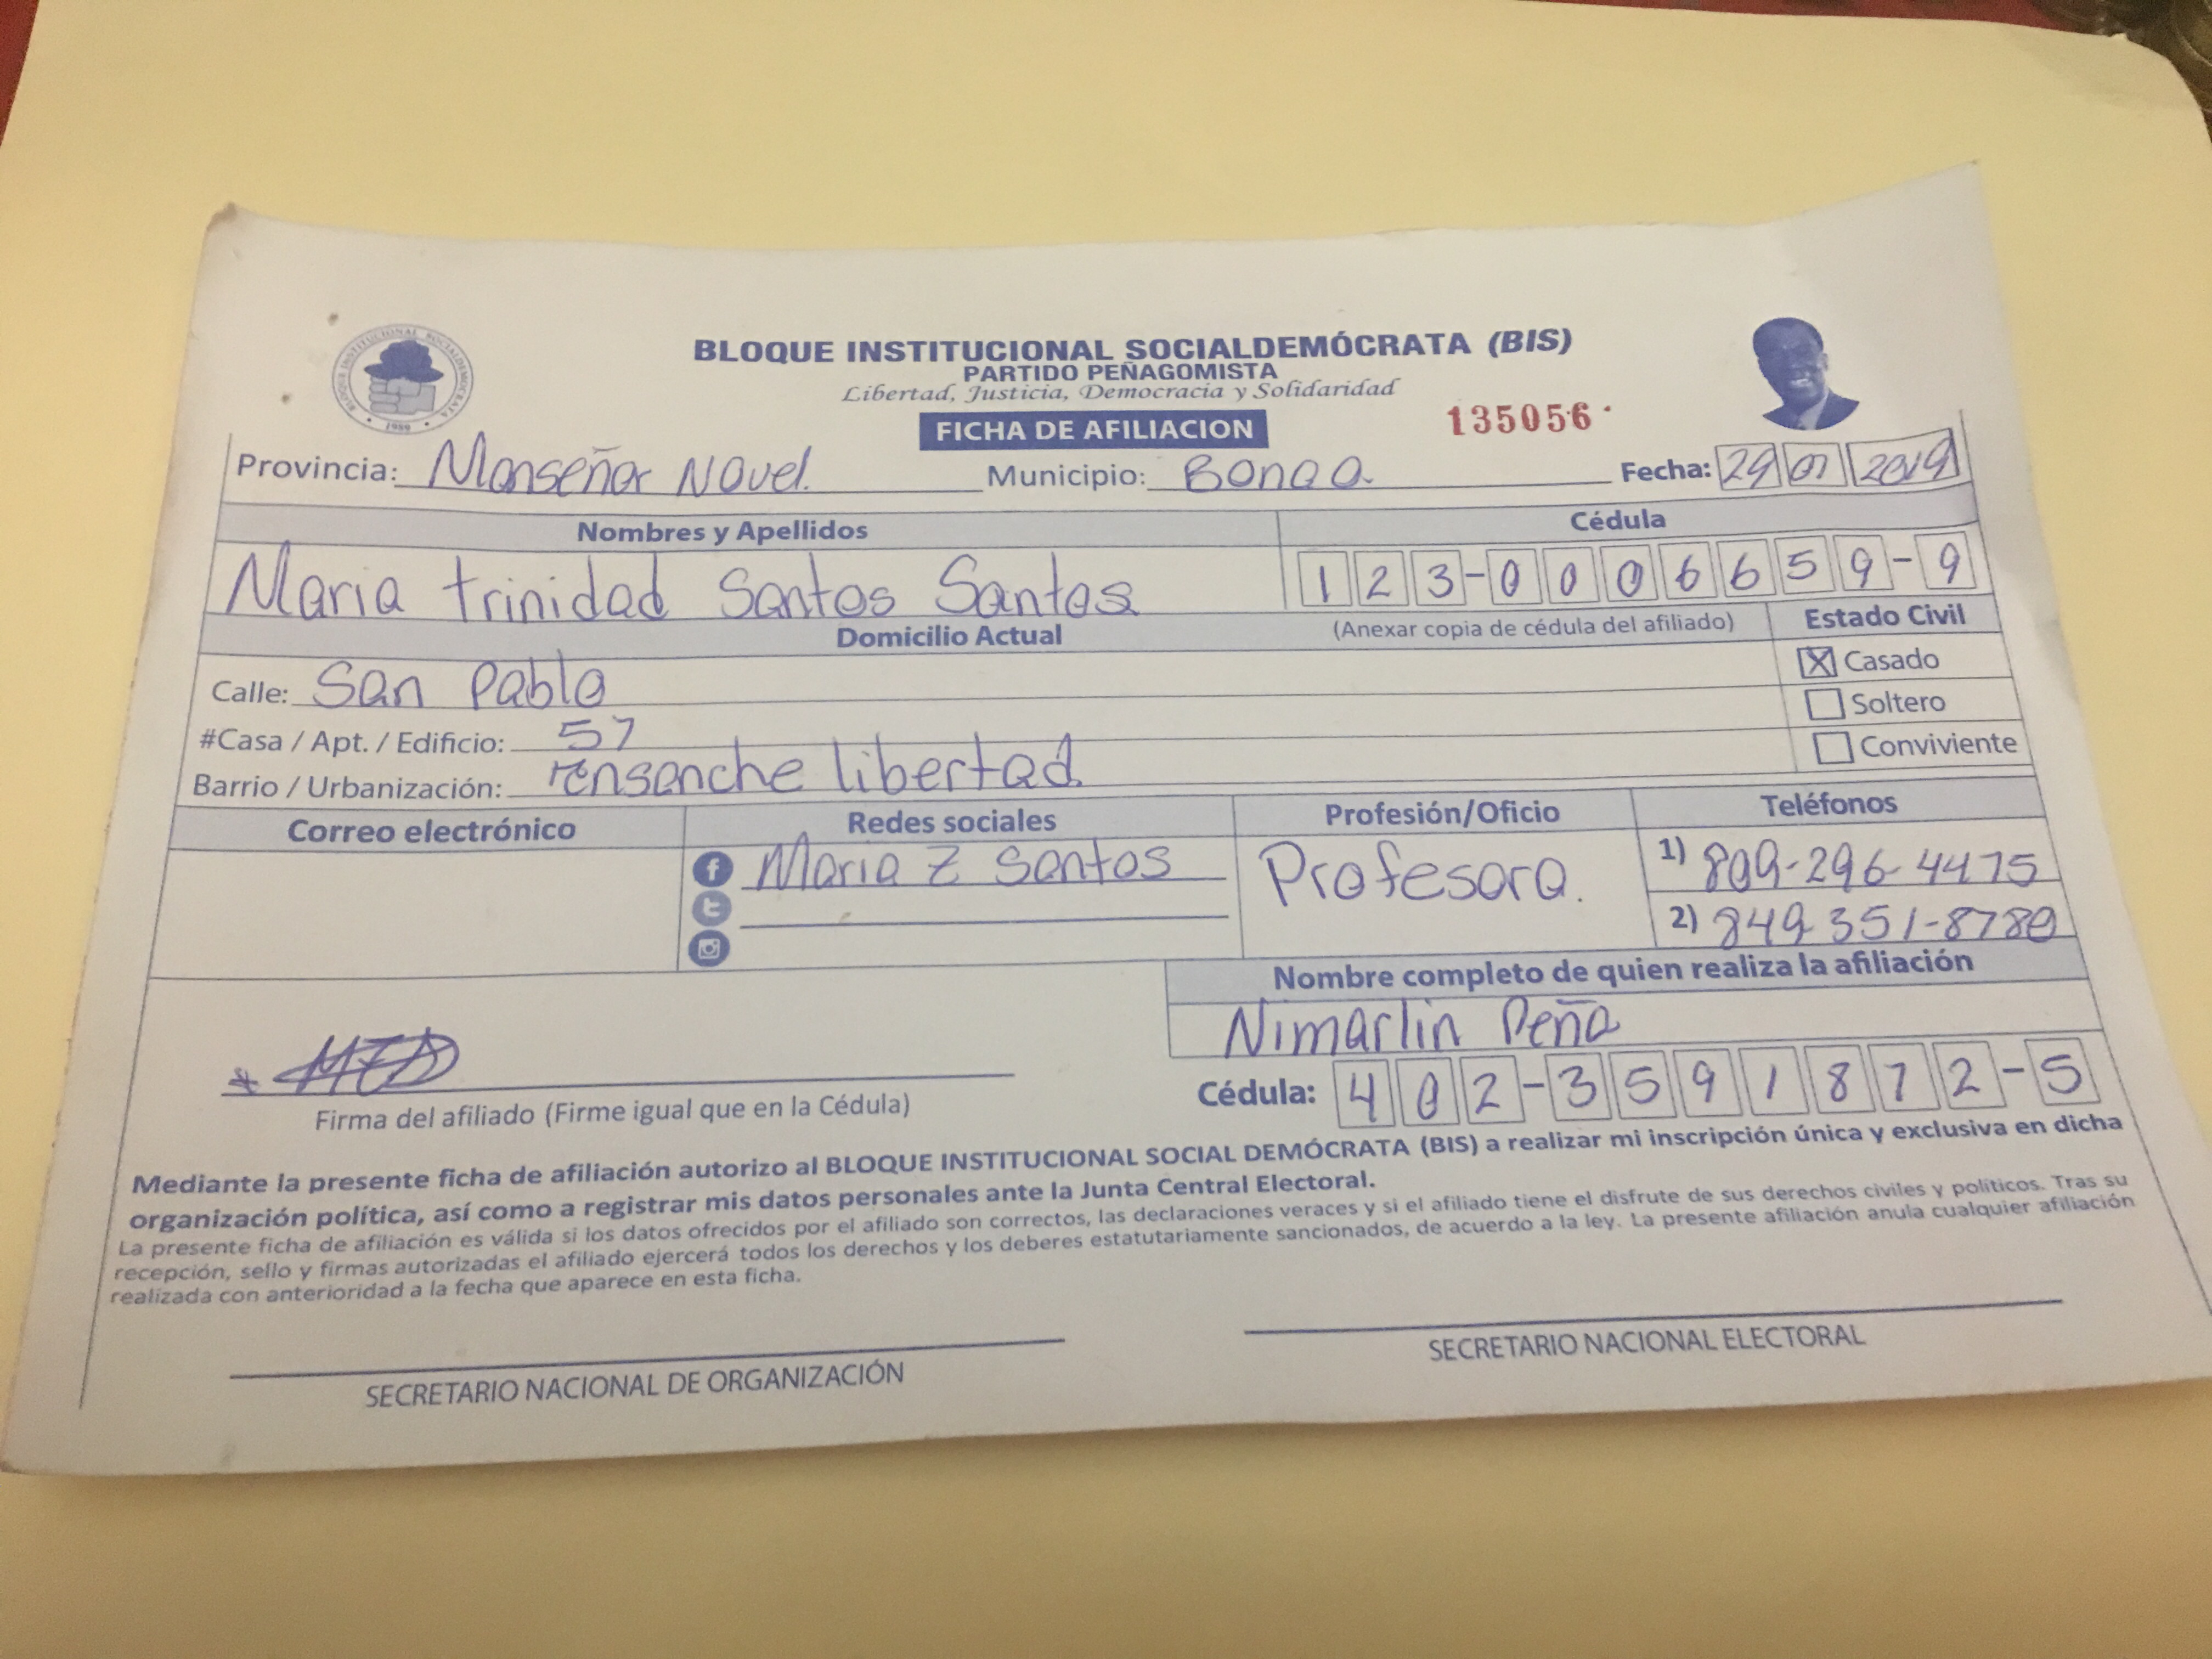 BLOQUE INSTITUCIONAL SOCIALDEMOCRATA
1989
BLOQUE INSTITUCIONAL SOCIALDEMÓCRATA (BIS)
PARTIDO PEÑAGOMISTA
Libertad, Justicia, Democracia y Solidaridad
FICHA DE AFILIACION
135056
Provincia: Monseñor Nouel. Municipio: Bonao. Fecha: 29 01 2019
Nombres y Apellidos Cédula
Maria trinidad Santos Santos 123-0006659-9
Domicilio Actual (Anexar copia de cédula del afiliado) Estado Civil
Calle: San Pablo X Casado
#Casa / Apt. / Edificio: 57 Soltero
Barrio / Urbanización: ensanche libertad Conviviente
Correo electrónico Redes sociales Profesión/Oficio Teléfonos
f Maria Z Santos Profesora. 1) 809-296-4475
2) 849 351-8780
Nombre completo de quien realiza la afiliación
Nimarlin Peña
Cédula: 402-3591872-5
Firma del afiliado (Firme igual que en la Cédula)
Mediante la presente ficha de afiliación autorizo al BLOQUE INSTITUCIONAL SOCIAL DEMÓCRATA (BIS) a realizar mi inscripción única y exclusiva en dicha
organización política, así como a registrar mis datos personales ante la Junta Central Electoral.
La presente ficha de afiliación es válida si los datos ofrecidos por el afiliado son correctos, las declaraciones veraces y si el afiliado tiene el disfrute de sus derechos civiles y políticos. Tras su
recepción, sello y firmas autorizadas el afiliado ejercerá todos los derechos y los deberes estatutariamente sancionados, de acuerdo a la ley. La presente afiliación anula cualquier afiliación
realizada con anterioridad a la fecha que aparece en esta ficha.
SECRETARIO NACIONAL DE ORGANIZACIÓN SECRETARIO NACIONAL ELECTORAL